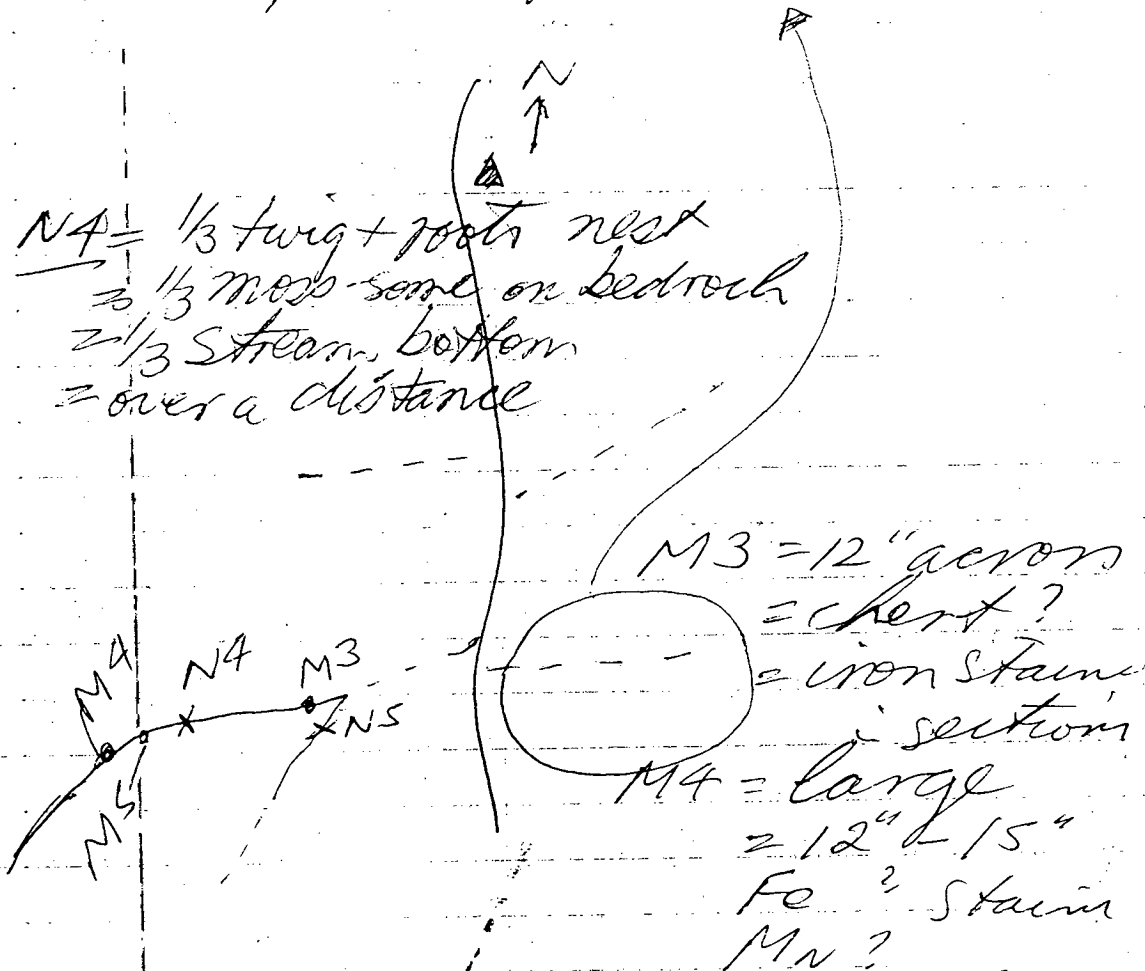 N
N4 = 1/3 twig + roots nest
= 1/3 moss - some on bedrock
= 1/3 Stream bottom
= over a distance
M3 = 12" across
= chert ?
= iron Stain
in sections
M4 N4 M3
N5
M5
M4 = large
= 12" - 15"
Fe ? Stain
MN ?